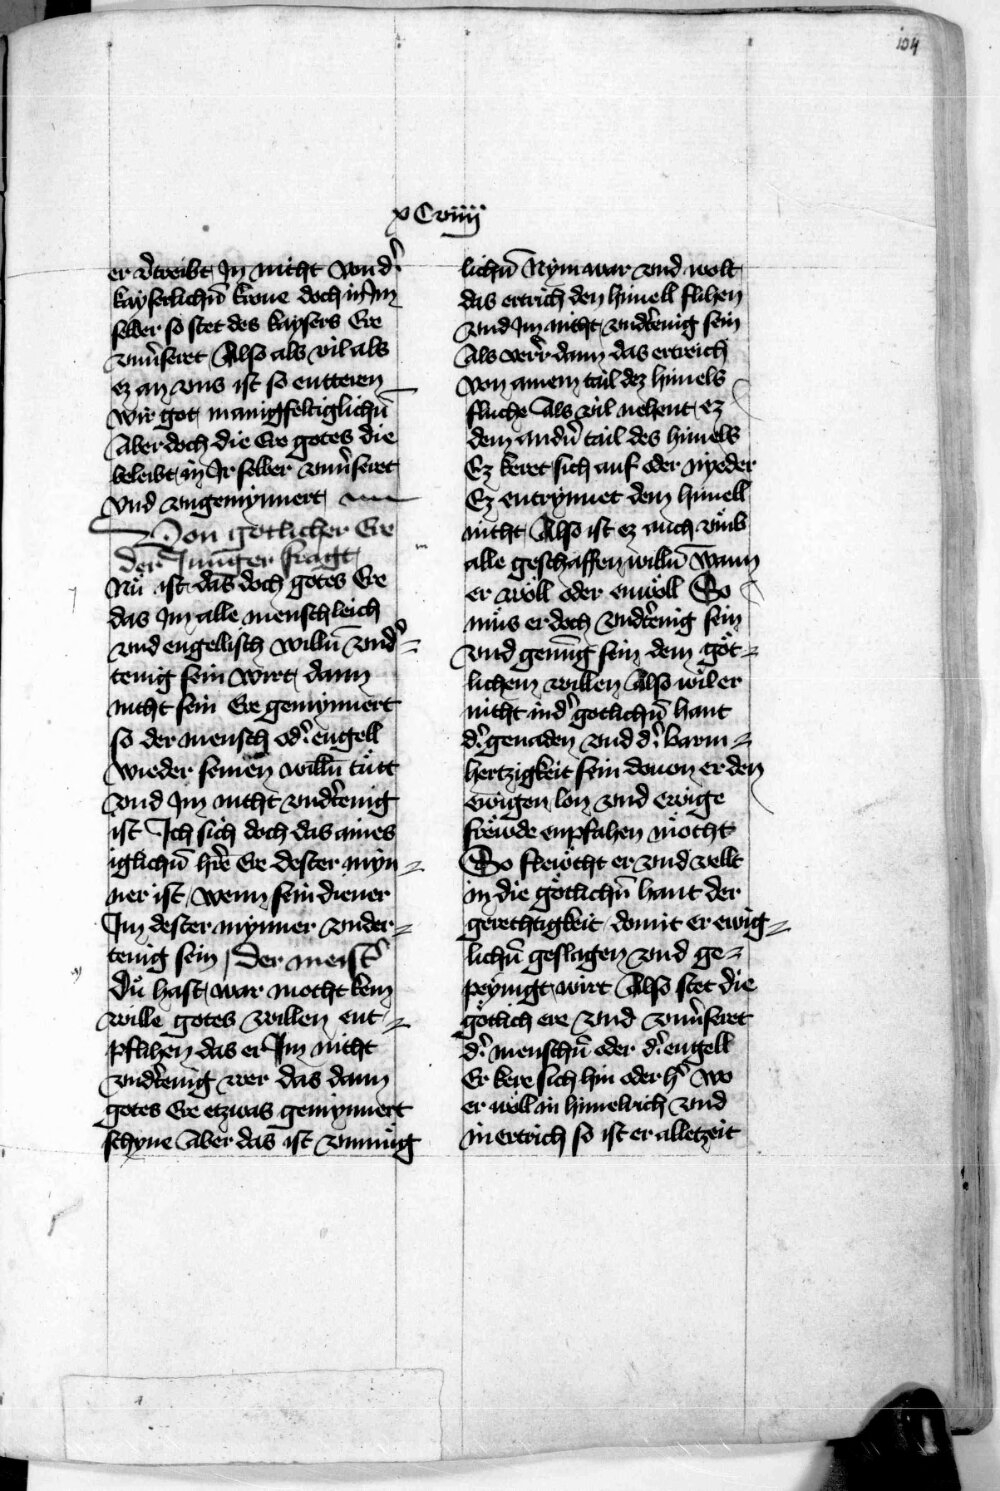 104
xCviiij
er v̾treibt Jn nicht von d̾
kayserlichn̄ krone doch in Jm
selber so stet des kaysers Ere
vnu̾seret Also als vil als
ez an vns ist so entteren
wir got manigfeltiglichn̄
Aber doch die Ere gotes die
beleibt in Jr selber vnu̾seret
vnd vngemynnert
Von gotlicher Ere
der Junger fragt
Nů ist das doch gotes Ere
das Jm alle menschleich
vnd engellisch willn̄ vnd̾=
tenig sein wirt dann
nicht sein Ere gemynnert
so der mensch od̾ engell
wieder seinen willn̄ tůtt
vnd Jm nicht vnd̾tenig
ist Ich sich doch das aines
iglichn̄ hr̄e Ere dester myn=
ner ist wenn sein diener
Jm dester mynner vnder=
tenig sein der meist̾
Dů hast war mocht kein
wille gotes willen ent=
pflihen das er Jm nicht
vnd̾tenig wer das dann
gotes Ere etzwas gemynnert
schyne Aber das ist vnmůg
lichn̄ Nym war vnd wolt
das ertrich den himell flihen
vnd Jm nicht vnd̾tenig sein
Als verr dann das ertreich
von ainem tail dez himels
fluche Als vil nehent ez
dem andn̾ tail des himels
Ez keret sich auf oder nyeder
Ez entrynnet dem himell
nicht Also ist ez auch vmb
alle geschaffen willn̄ wann
er wöll oder enwöll So
můs er doch vnd̾tenig sein
vnd genůg sein dem göt=
lichem willen Also wil er
nicht in d̾ gotlichn̄ hant
d̾ genaden vnd d̾ barm=
hertzigkeit sein douon er den
ewigen lon vnd ewige
frewde enpfahen möcht
So flewcht er vnd vellt
in die götlichn̄ hant der
gerechtigkeit domit er ewig=
lichn̄ geslagen vnd ge=
peynigt wirt Also stet die
götlich ere vnd vnu̾seret
d̾ menschn̄ oder d̾ engell
Er kere sich hin oder h̾ wo
er wöll in himelrich vnd
in ertrich so ist er alletzeit